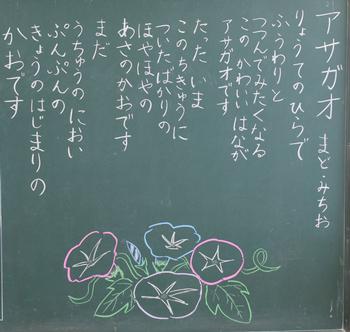 アサガオ
まど・みちお
りょうてのひらで
ふうわりと
つつんでみたくなる
この かわいい はなが
アサガオです
たった いま
このちきゅうに
ついたばかりの
ほやほやの
あさのかおです
まだ
うちゅうの におい
ぷんぷんの
きょうのはじまりの
かおです